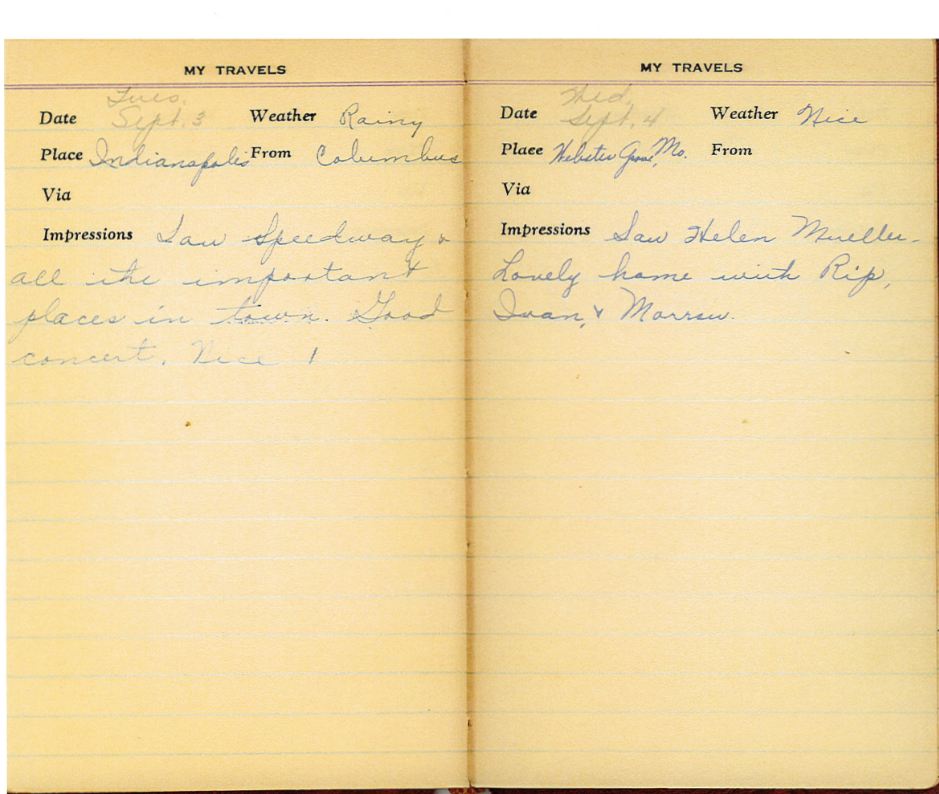 MY TRAVELS
Tues.
Date Sept. 3 Weather Rainy
Place Indianapolis From Columbus
Via
Impressions Saw Speedway &
all the important
places in town. Good
concert. Nice
MY TRAVELS
Wed.
Date Sept. 4 Weather Nice
Place Webster Grove, Mo. From
Via
Impressions Saw Helen Mueller.
Lovely home with Rip,
Ivan, &